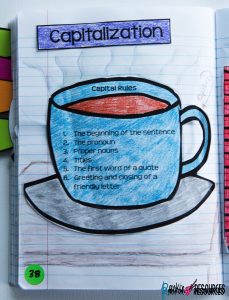 Capitalization
Capital Rules
1. The beginning of the sentence
2. The pronoun I
3. Proper nouns
4. Titles
5. The first word of a quote
6. Greeting and closing of a
friendly letter
38
RESOURCES